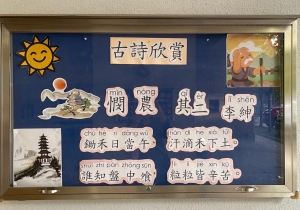 古詩欣賞
mǐn nóng qí èr lǐ shēn
憫農 其二 李紳
chú hé rì dāng wǔ hàn dī hé xià tǔ
鋤禾日當午 汗滴禾下土
shuí zhī pán zhōng sūn lì lì jiē xīn kǔ
誰知盤中飧 粒粒皆辛苦。